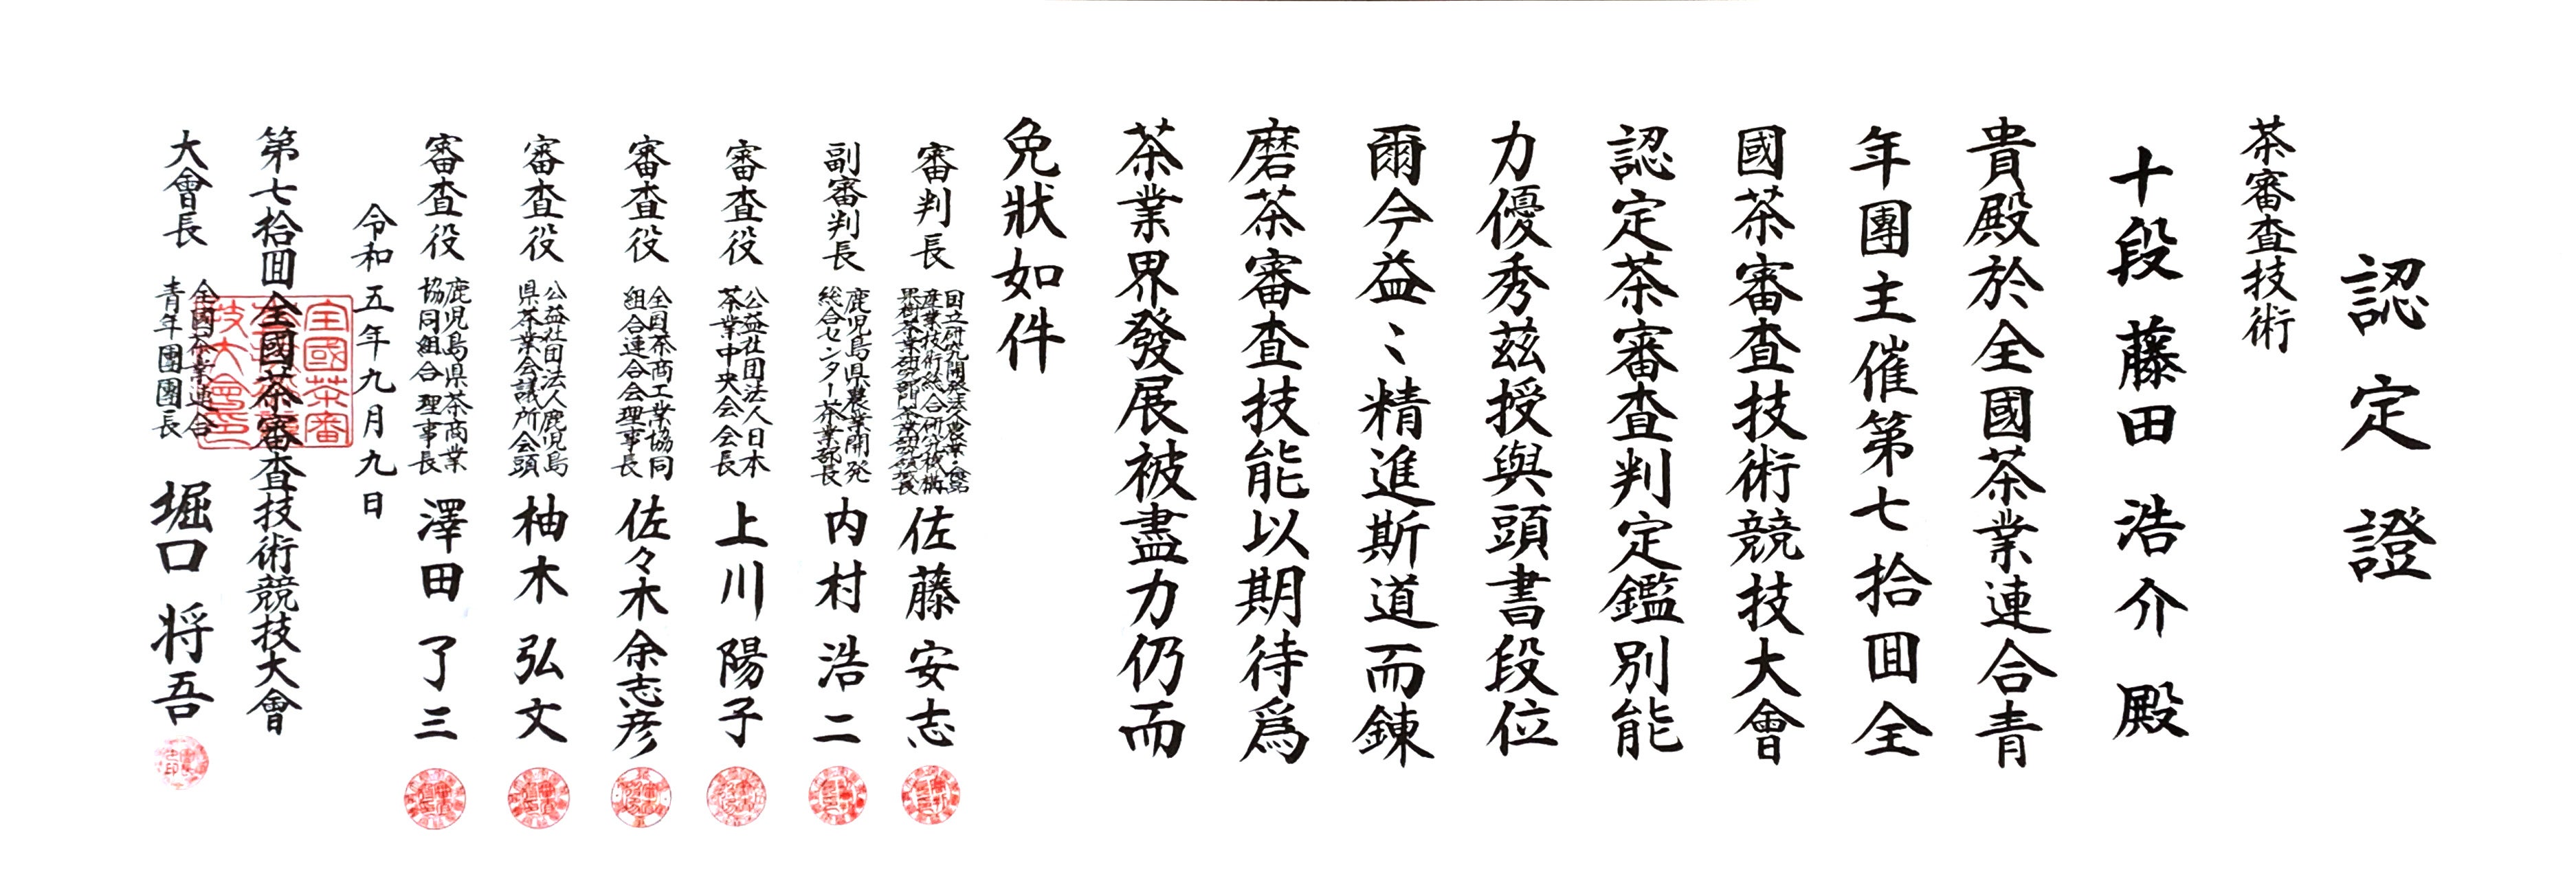 認定證
茶審査技術
十段 藤田 浩介 殿
貴殿於全國茶業連合青
年團主催第七拾回全
國茶審査技術競技大會
認定茶審査判定鑑別能
力優秀茲授與頭書段位
爾今益〻精進斯道而錬
磨茶審査技能以期待爲
茶業界發展被盡力仍而
免狀如件
審判長
国立研究開発法人農業・食品
産業技術総合研究機構
果樹茶業研究部門茶業研究領域長
佐藤 安志
副審判長
鹿児島県農業開発
総合センター茶業部長
内村 浩二
審査役
公益社団法人日本
茶業中央会会長
上川 陽子
審査役
全国茶商工業協同
組合連合会理事長
佐々木 余志彦
審査役
公益社団法人鹿児島
県茶業会議所会頭
柚木 弘文
審査役
鹿児島県茶商業
協同組合 理事長
澤田 了三
令和五年九月九日
第七拾回全國茶審査技術競技大會
大會長
全國茶業連合
青年團團長
堀口 将吾
全國茶審
技大會印